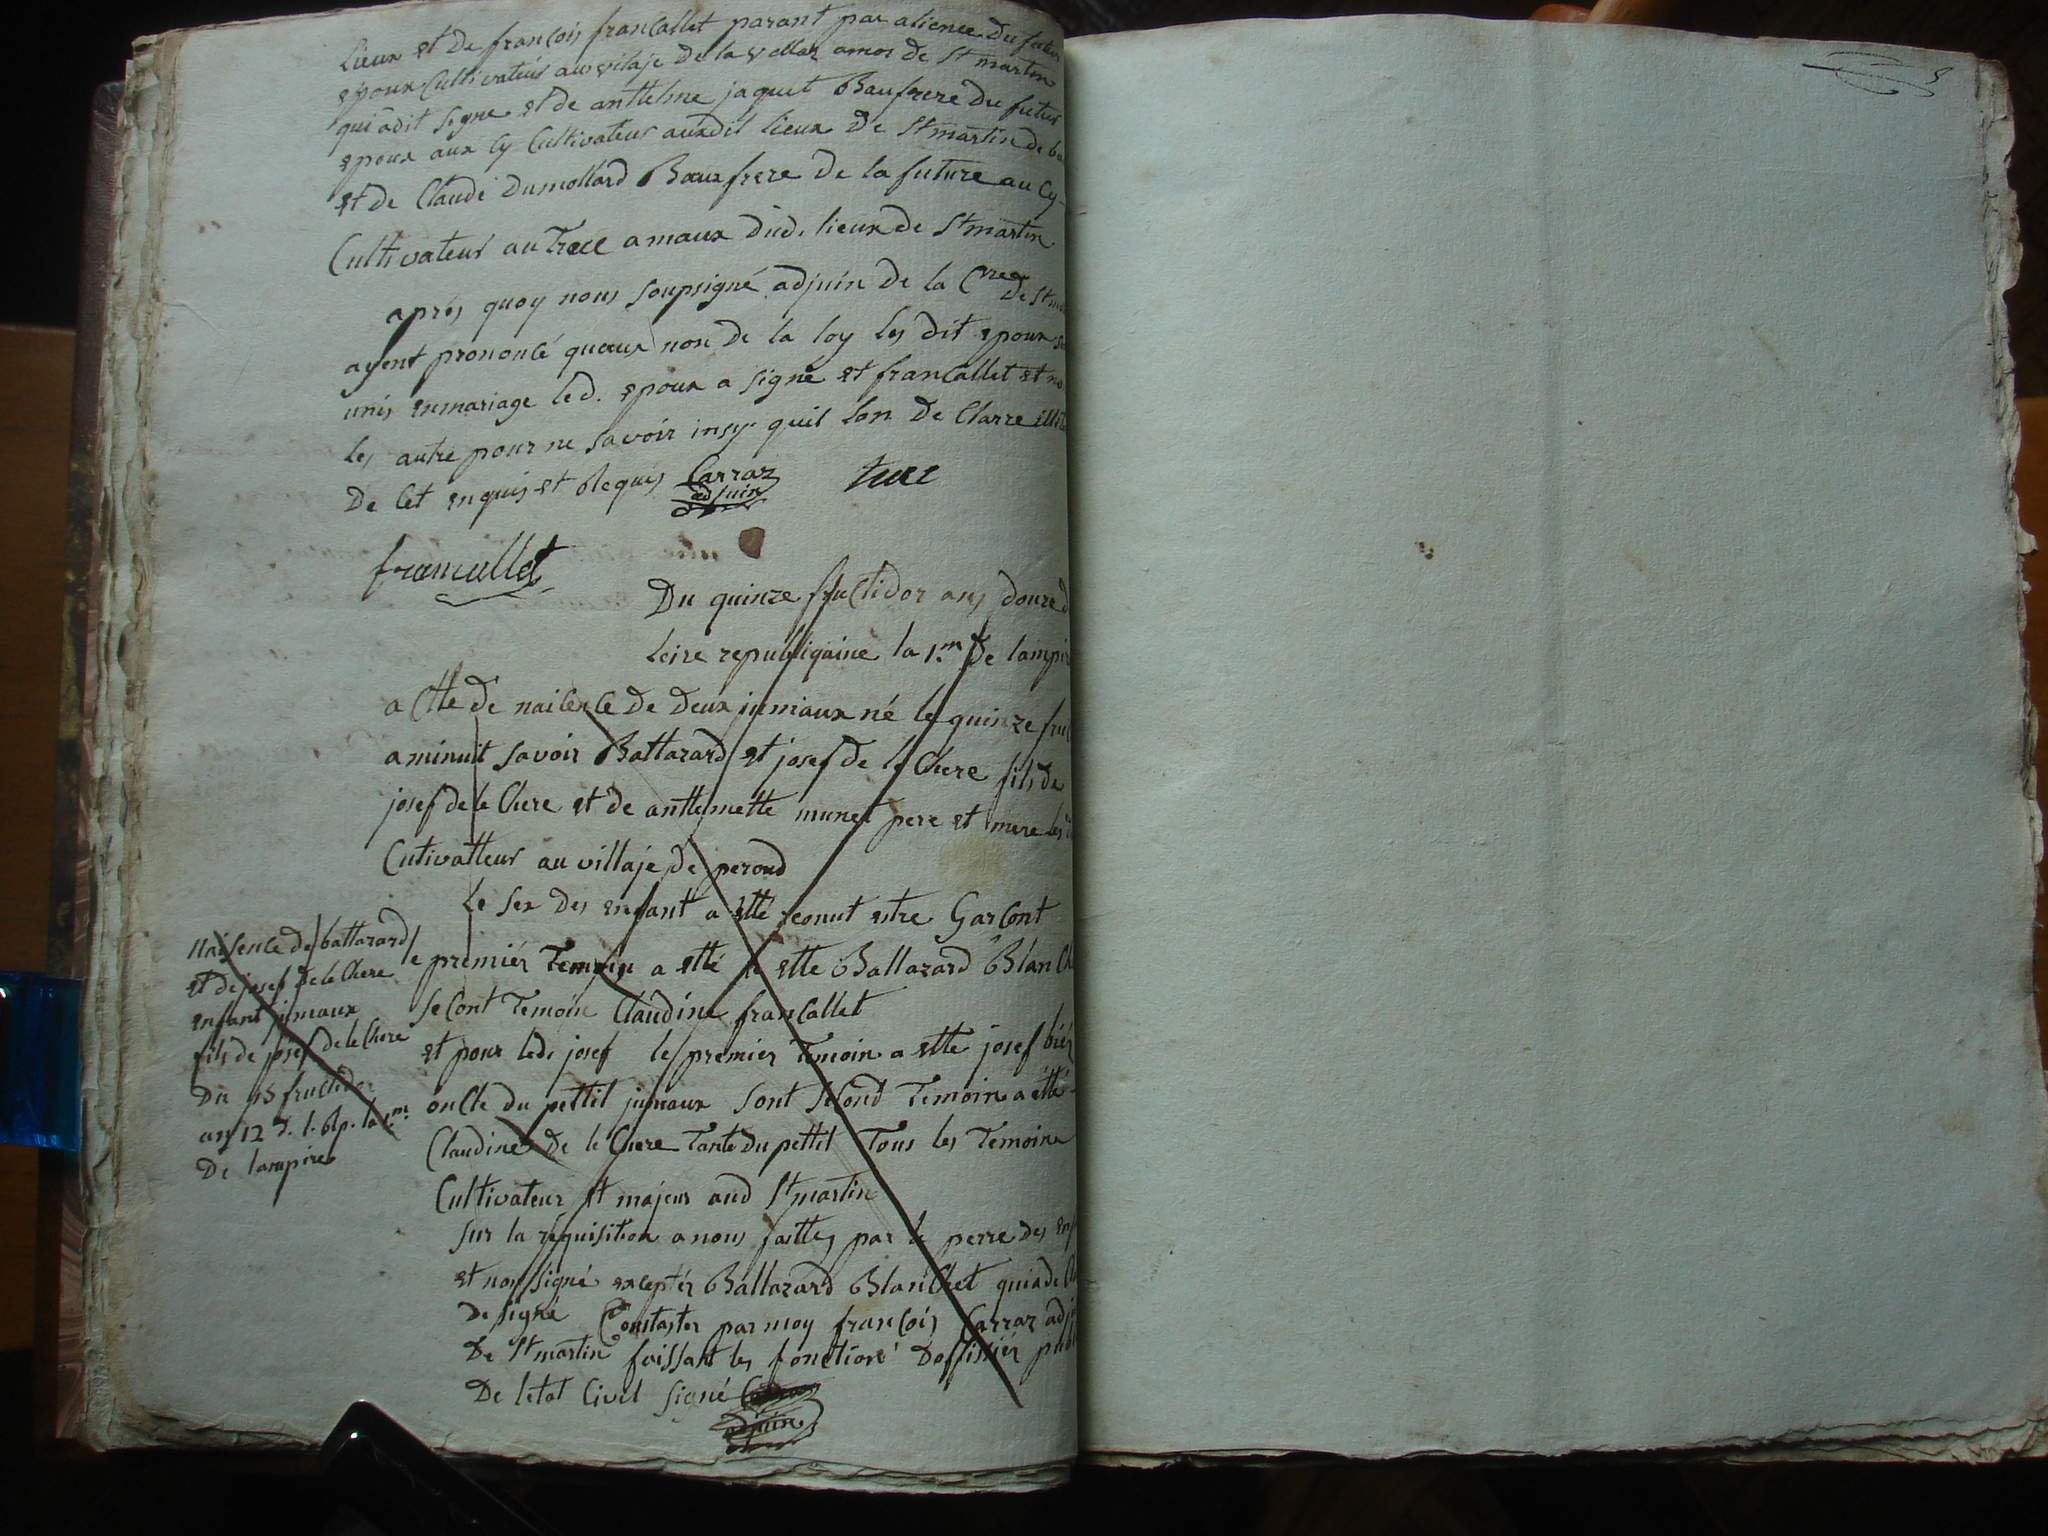 lieux et de francois francallet parant par alience du futur
epoux Cultivateur au vilaje de la vellaz amos de St martin
qui a dit signe et de anttelme jaquet Baufrere du futur
epoux aux Cy Cultivateur aux dit lieux de St martin de
et de Claude Dumollard Baux frere de la future au Cy
Cultivateur au Trece amaux dud. lieux de St martin
apres quoy nous soupsigné adjuin de la de St
ayent prononcé quaux non de la loy les dit epoux
unis enmariage led. epoux a signé et francallet et
les autre pour ne savoir insy quil lon de Clarre
De Cet enquis et Requis Carraz
adjuin
francallet
Du quinze fructidor ans douze
Leire republiqaine la 1.m de lampire
a Ctte de naisence de deux jumiaux né le quinze fruc
a minuit savoir Battazard et josef de le Chere fils de
josef de le Chere et de anttemette munet pere et mere les
Cutivatteur au villaje de perond
Le sex des enfant a etté reconut estre GarCont
le premiér Temoin a etté Ballazard BlanCh
seCont Temoin Claudine franCallet
et pour led. josef le premier Temoin a ette josef
onCle du pettit jumaux sont second Temoin a étté
Claudine de le Chere Tante du pettit Tous les Temoin
Cultivateur et majeur aud St martin
Sur la requisition a nous faittes par le perre des
et non signé exceptér Ballazard BlanChet qui a de
De signé Constaster par moy francois Carraz adj
De St martin faissant les fonctions Doffissiér
De letat Civil signé Carraz
adjuin
naisence de battazard
et de josef de le Chere
enfant jumaux
fils de josef de le Chere
Du 15 fructidor
an 12 d. l. Rp. la 1.m
De lampire